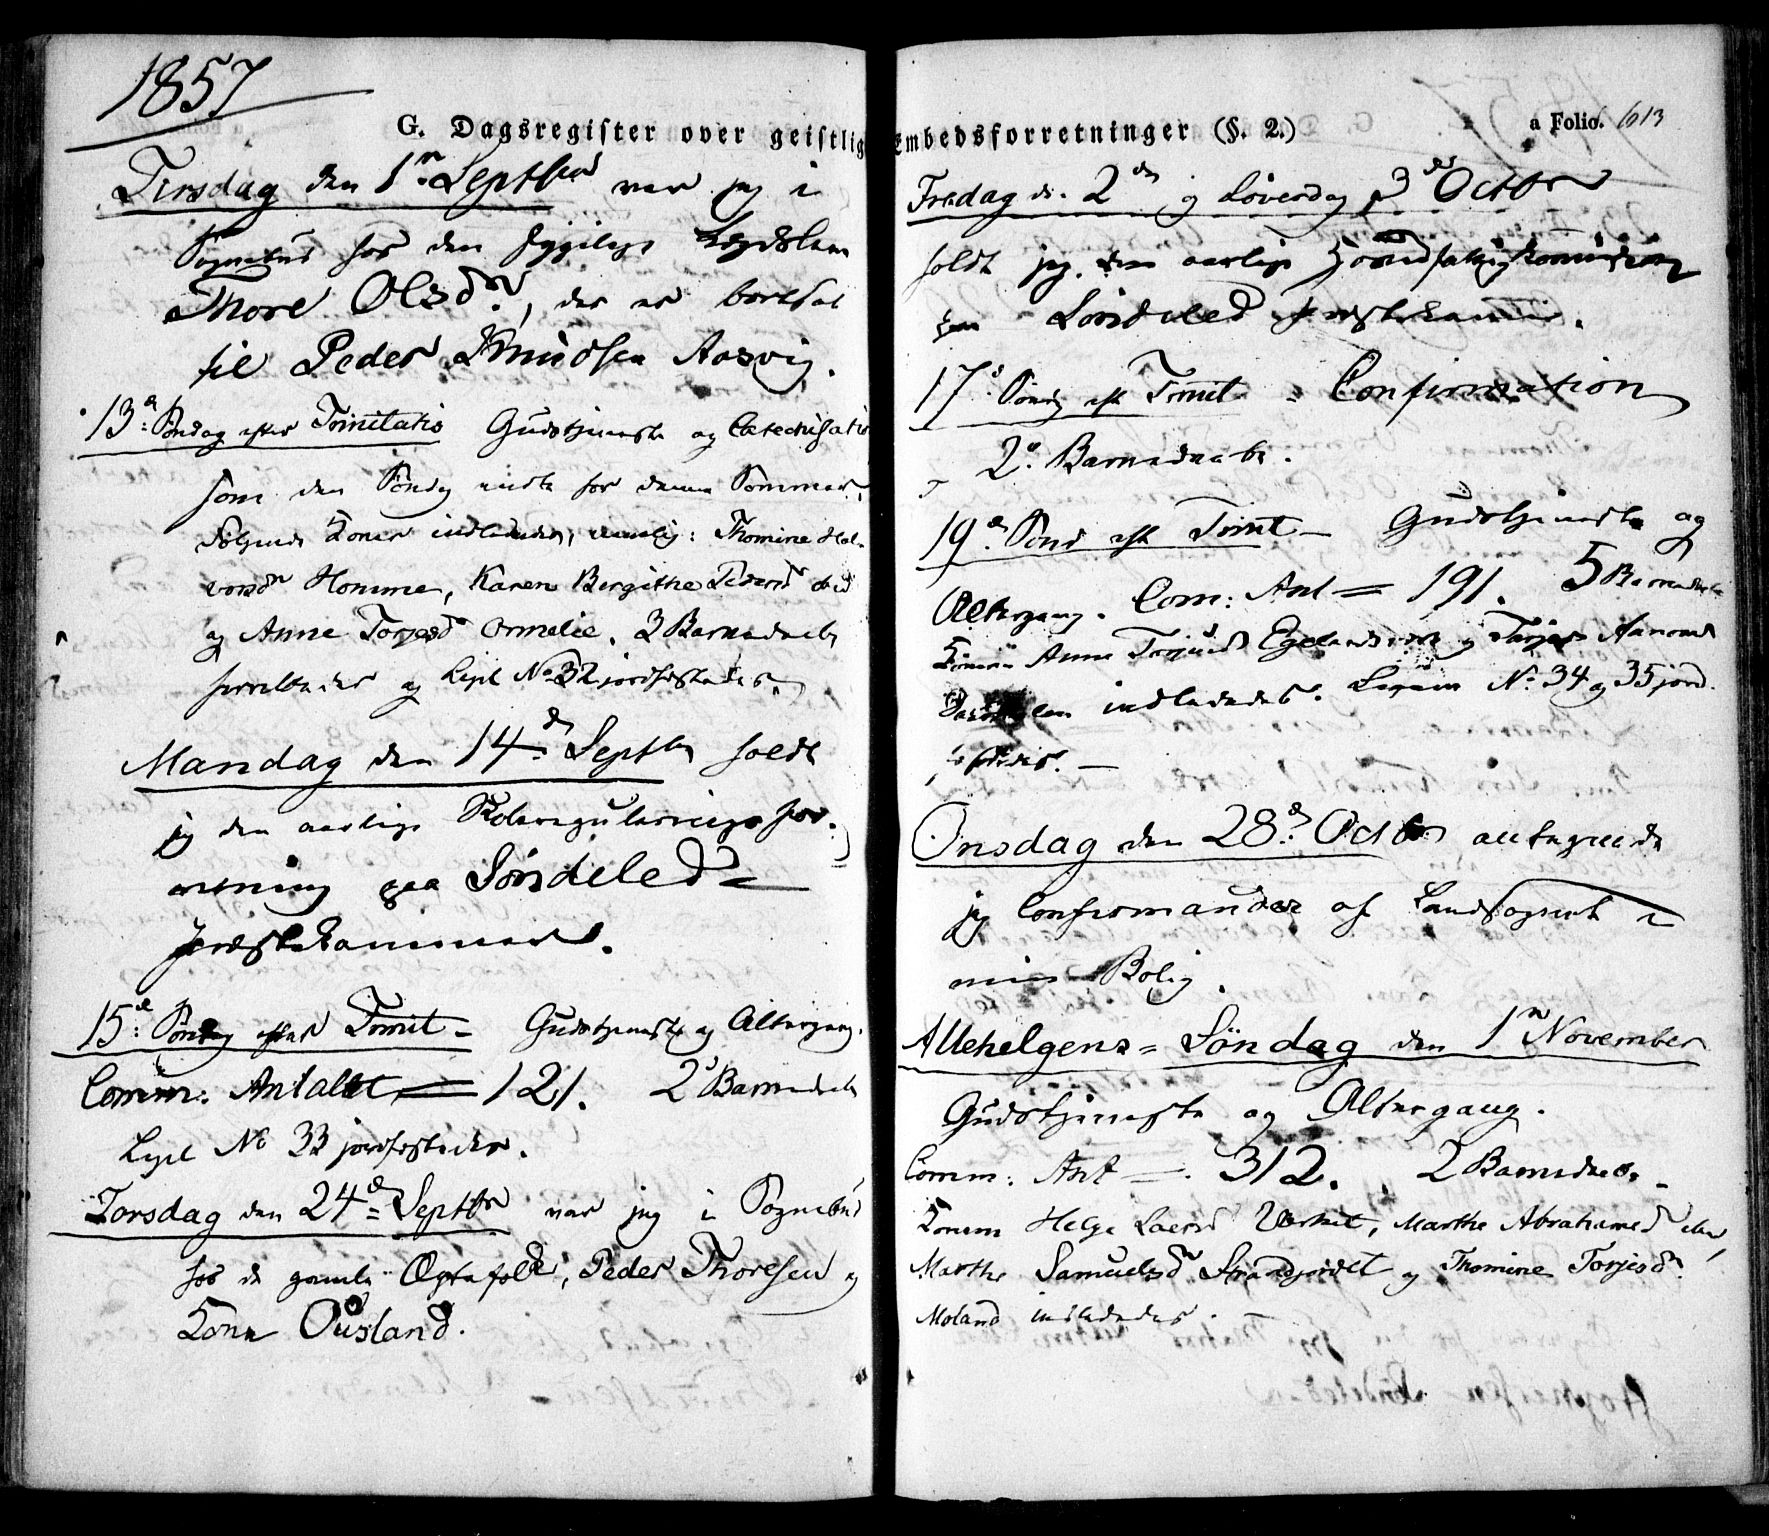 1857
G. Dagsregister over geistlig
Tirsdag den 1n Septbr var jeg i
Sognebud hos den sygelige Lægdslem
Thore Olsdr, der er bortsat
til Peder Knudsen Aasvig.
13d: Søndag efter Trinitatis Gudstjeneste og Catechisation
som den Søndag endte for denne Sommer.
Følgende Koner indlededes, nemlig: Thomine Hal-
vorsdr Homme, Karen Bergithe Pedersd
og Anne Torjesd Ormelie. 3 Barnedaab
forrettedes og Liget No 32 jordfæstedes.
Mandag den 14d Septbr holdt
jeg den aarlige Skoleregulerings for-
retning paa Søndeled
Præstekammer.
15d: Søndag efter Trinit. Gudstjeneste og Altergang.
Comm: Antallet = 121. 2 Barnedaab
Liget No 33 jordfæstedes.
Torsdag den 24d Septbr var jeg i Sognebud
hos de gamle Ægtefolk, Peder Thoresen og
Kone Ousland.
Embedsforretninger (§. 2.)
a Folio. 613
Fredag d. 2den og Løverdag 3d Octbr
holdt jeg den aarlige Hovedfattigkommission
paa Søndeled Præstekammer.
17d Sønd. eft Trinit - Confirmation
2 Barnedaab.
19d Sønd eft Trinit - Gudstjeneste og
Altergang. Com: Ant = 191. 5 Barnedaab
Konerne Anne Torjusd Egelands og Torjer
indlededes. Ligene No 34 og 35 jord-
fæstedes. -
Onsdag den 28d Octbr antegnede
jeg Confirmander af Landsognet i
min Bolig.
Allehelgens = Søndag den 1n November
Gudstjeneste og Altergang.
Comm: Ant = 312. 2 Barnedaab. -
Konerne Helge Laersd Værket, Marthe Abrahamsd
Marthe Samuelsdr Strandjordet og Thomine Torjesdr
Moland indlededes. -